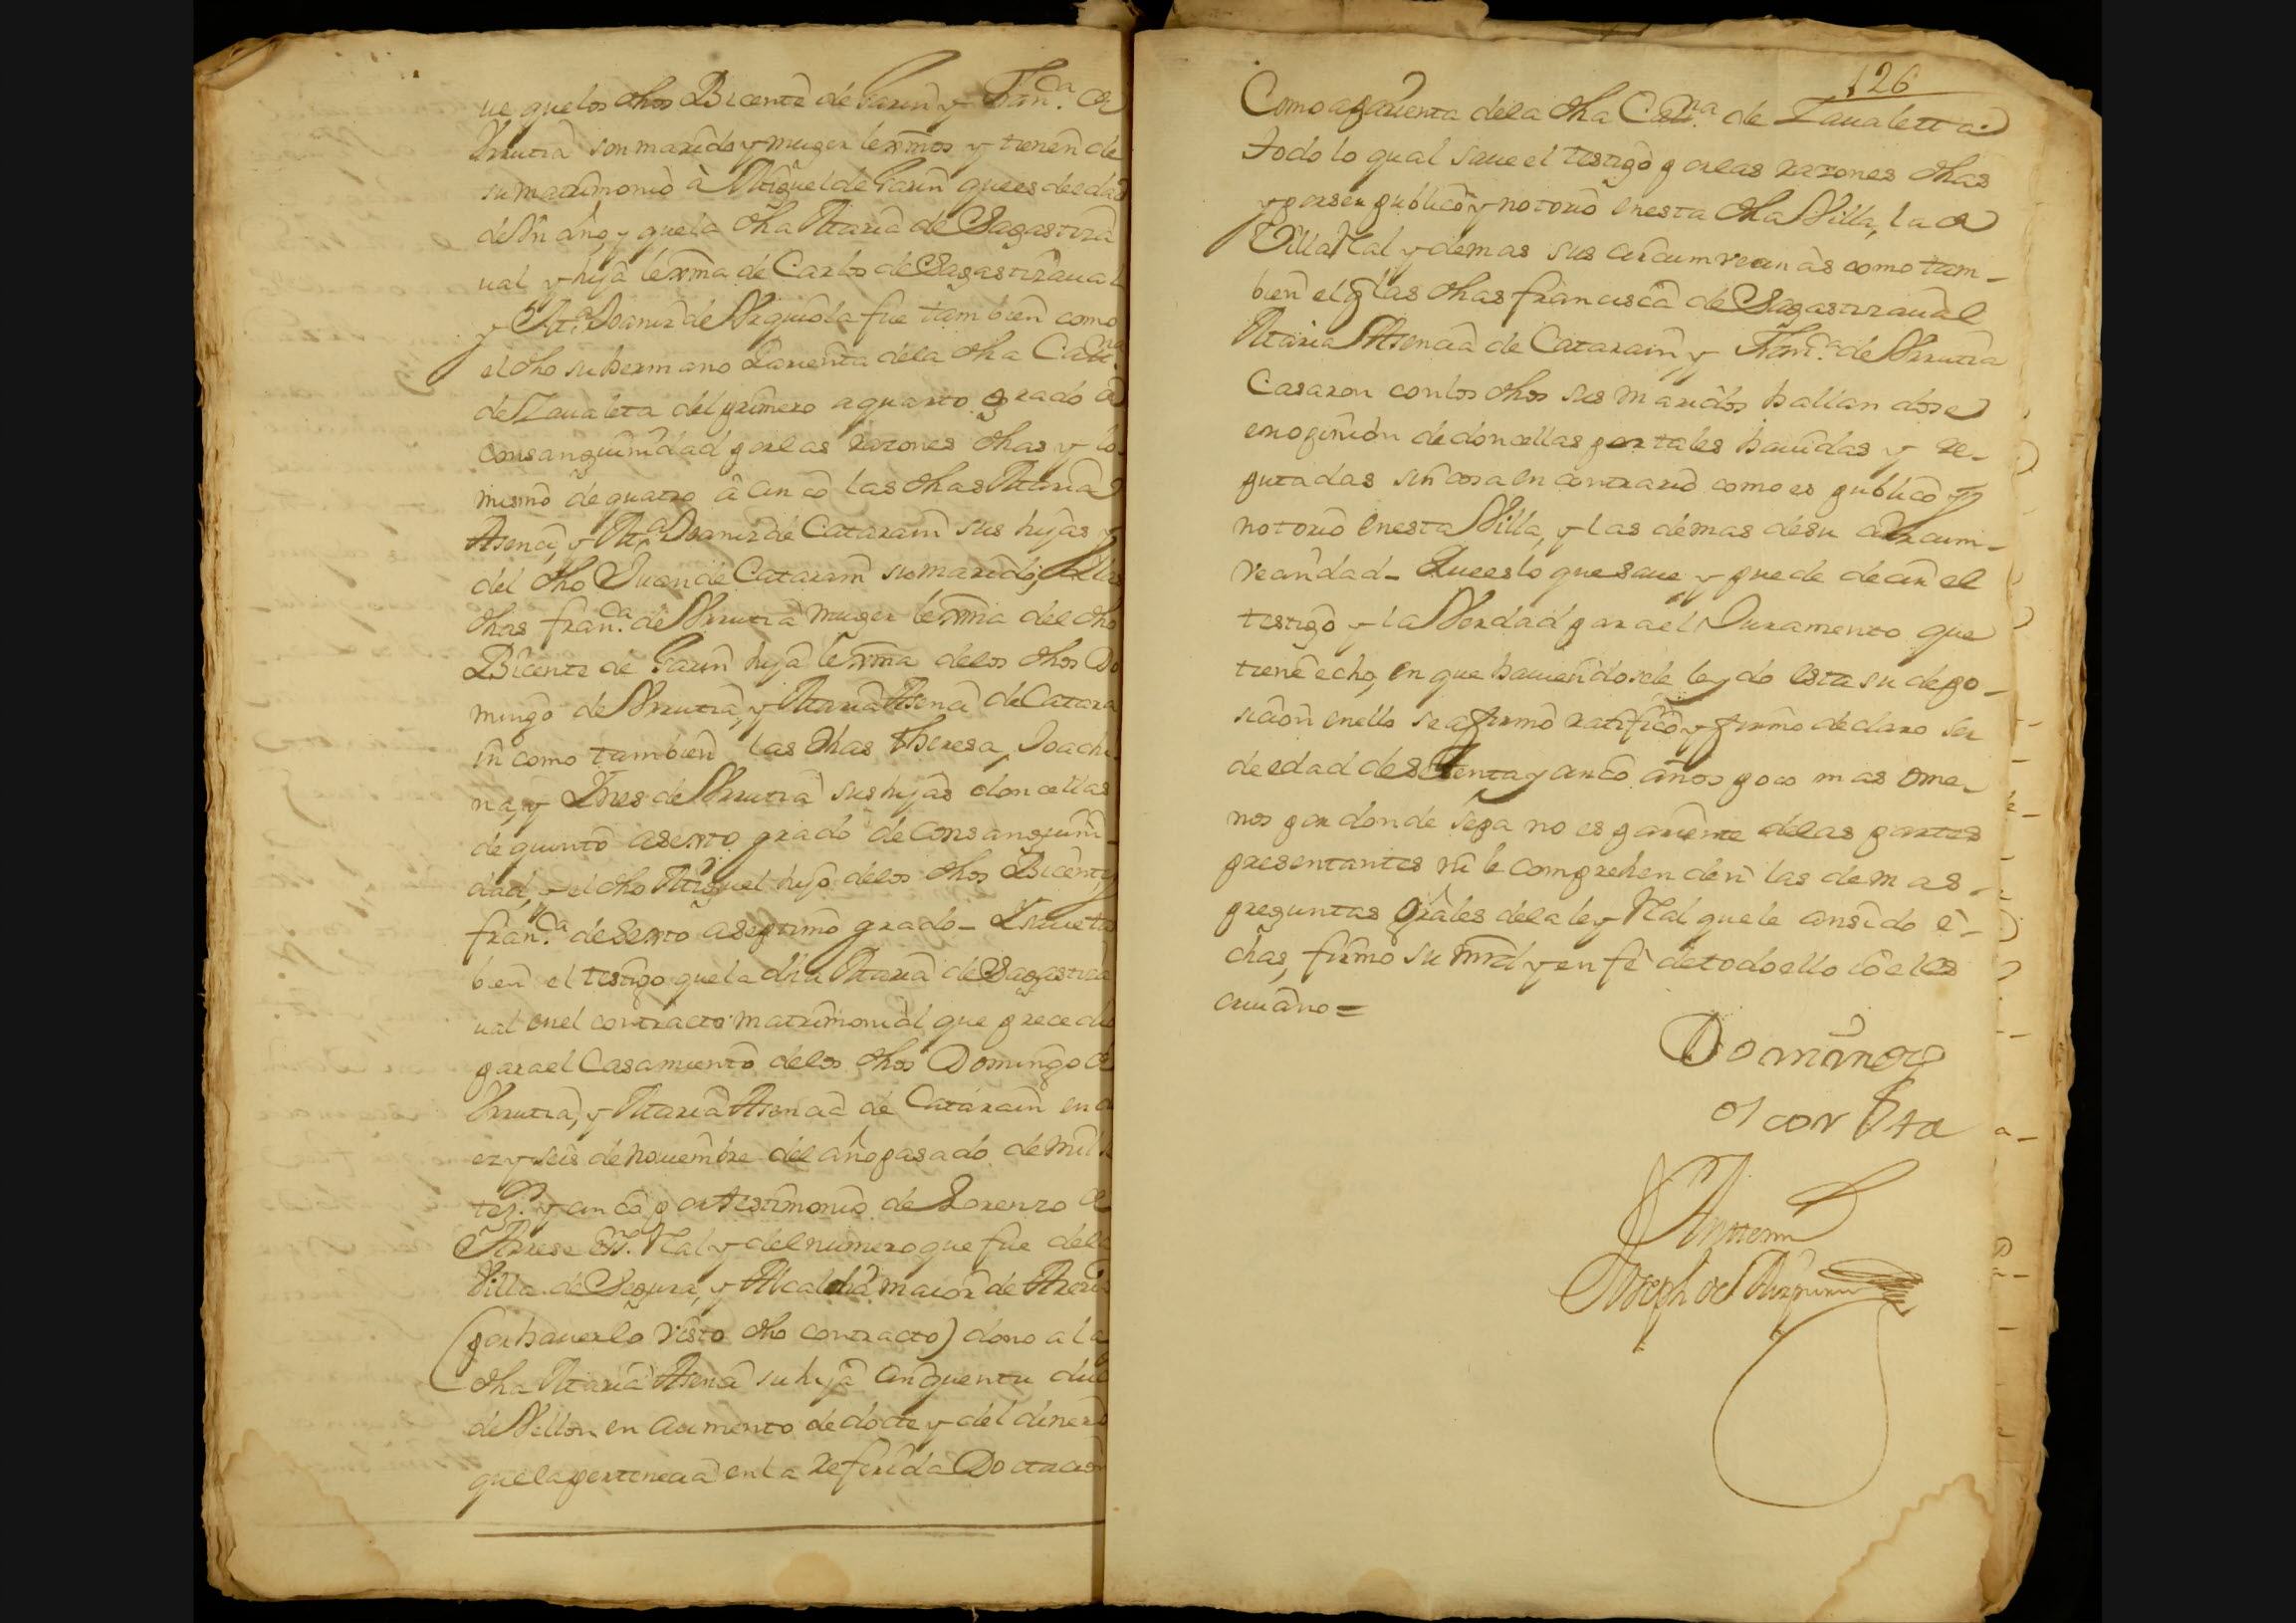 ue que los dhos Bicente de Garin y Fran.ca de
Vrrutia son marido y muger lexmos y tienen de
su matrimonio à Miguel de Garin que es de edad
de Vn año, y que la dha Maria de Sagastiza
ual y hija lexma de Carlos de Sagastizaual
y M.a Joaniz de Vrquiola fue tambien como
el dho su hermano Parienta de la dha Cat.na
de Zaualeta del primero a quarto grado de
consanguinidad por las razones dhas y lo
mismo de quatro â cinco las dhas Maria
Asencia, y M.a Joaniz de Catarain sus hijas y
del dho Juan de Catarain su marido, y las
dhas fran.ca de Vrrutia muger lexma del dho
Bicente de Garin hija lexma de los dhos Do
mingo de Vrrutia, y Maria Asencia de Catara
in como tambien las dhas Theresa, Joachi
na, y Ines de Vrrutia sus hijas doncellas
de quinto a sexto grado de consanguini
dad, y el dho Miguel hijo de los dhos Bicente, y
fran.ca de Sexto a septimo grado - Y saue ta
bien el testigo que la dha Maria de Sagastiza
ual en el contracto matrimonial que precedio
para el Casamiento de los dhos Domingo de
Vrrutia, y Maria Asencia de Catarain en di
ez y seis de nouiembre del año pasado de mil se
tez.s y cinco por testimonio de Lorenzo de
Arrese Ess.no Ral y del numero que fue de la
Villa de Segura, y Alcaldia maior de Areria
(por hauerlo visto dho contracto) dono a la
dha Maria Asencia su hija cinquenta duc
de Vellon en aumento de docte y del dinero
que la pertenecia en la referida Doctacion
126
Como a parienta de la dha Cat.na de Zaualetta
todo lo qual saue el testigo por las razones dhas
y por ser publico y notorio en esta dha Villa, la de
Villa Ral y demas sus circumvecinâs como tam-
bien el q las dhas francisca de Sagastizaual
Maria Asencia de Catarain, y Fran.ca de Vrrutia
Casaron con los dhos sus maridos hallandose
en opinion de doncellas por tales hauidas y re-
putadas sin cosa en contrario como es publico y
notorio en esta Villa, y las demas de su circum-
vecindad - Que es lo que saue y puede decir el
testigo y la Verdad para el Juramento que
tiene echo, en que hauiendosele leydo esta su depo-
sicion en ello se afirmo ratifico y firmo declaro ser
de edad de setenta y cinco años poco mas ome-
nos por donde sepa no es pariente de las partes
presentantes ni le comprehenden las demas
preguntas grales de la ley Ral que le an sido è-
chas, firmo su mrd y en fè de todo ello iô el es
criuano =
Domingo
Ante mi
Joseph de